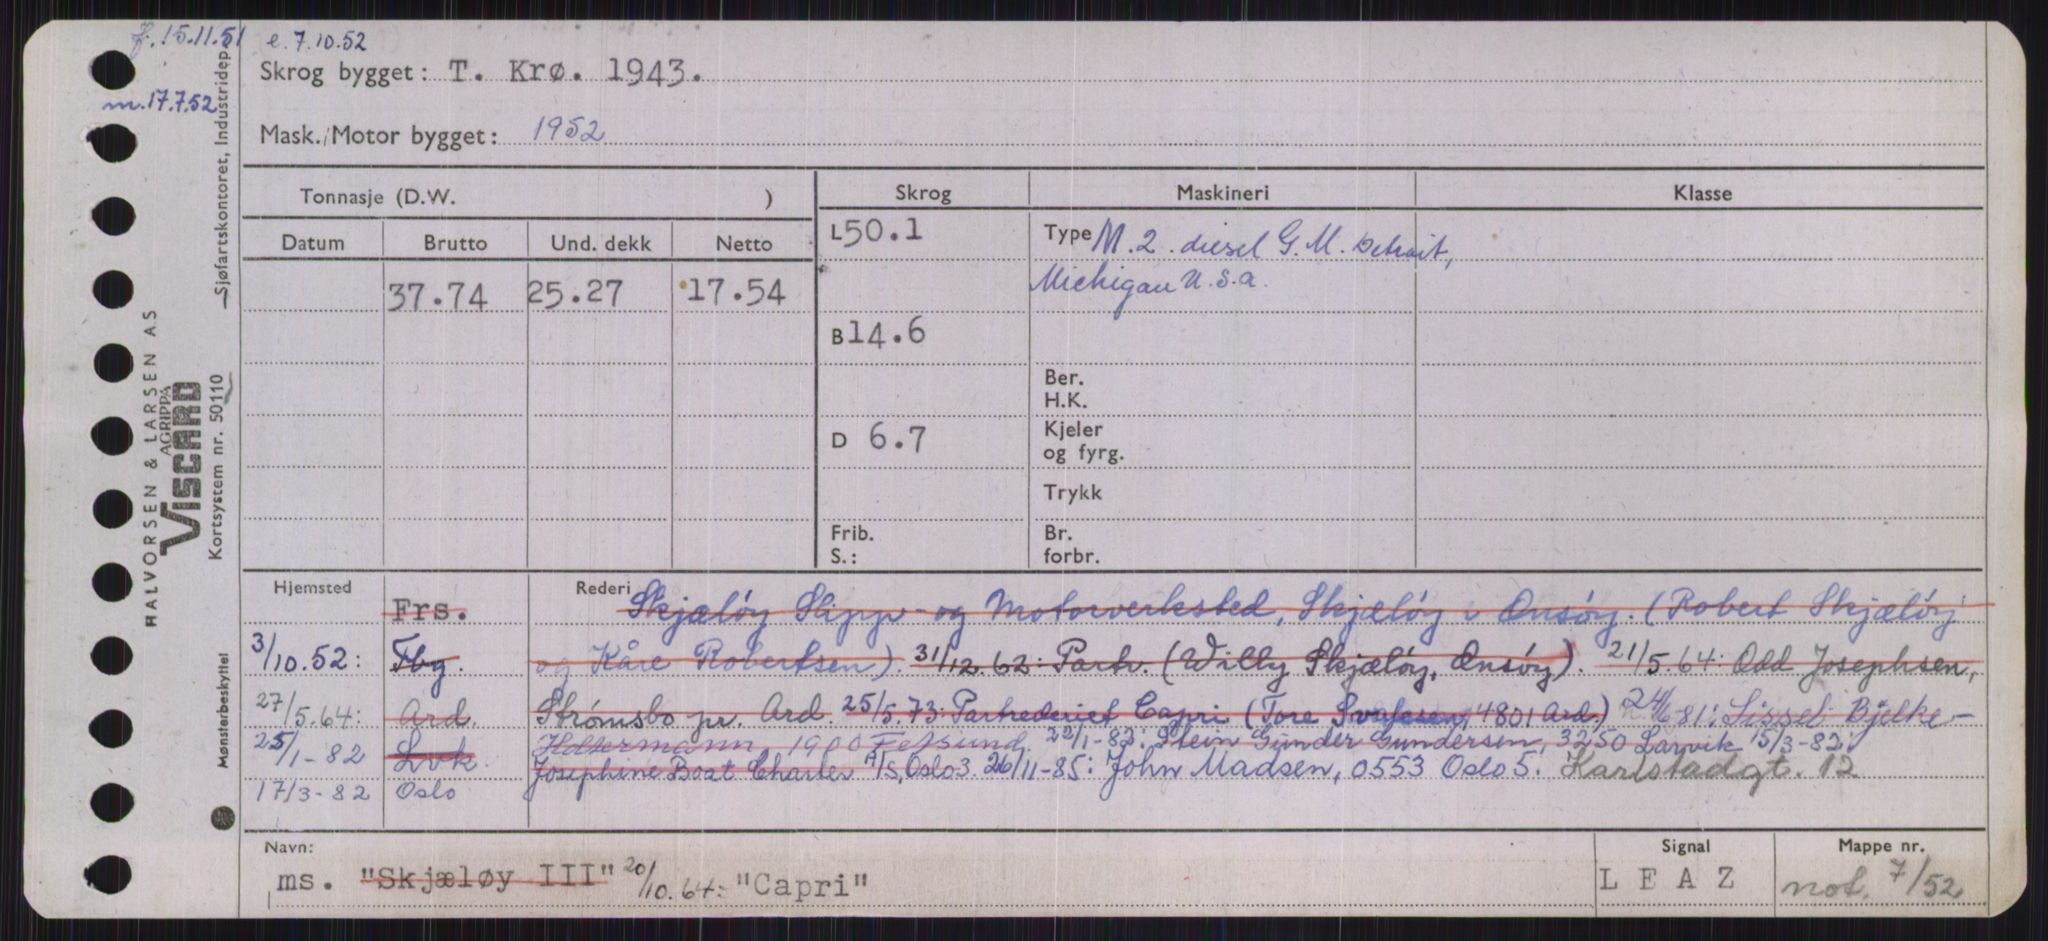 f. 15.11.51 e. 7.10.52
Skrog bygget: T. Krø. 1943.
m. 17.7.52
Mask./Motor bygget: 1952
Sjøfartskontoret, Industridep.
HALVORSEN & LARSEN AS
AGRIPPA
VISCARD
Kortsystem nr. 50110
Mønsterbeskyttet
Tonnasje (D.W. )
Skrog Maskineri Klasse
Datum Brutto Und. dekk Netto
37.74 25.27 17.54
L 50.1
B 14.6
D 6.7
Frib.
S.:
Type M. 2. diesel G.M. Detroit,
Michigan U.S.A.
Ber.
H.K.
Kjeler
og fyrg.
Trykk
Br.
forbr.
Hjemsted Frs. Rederi Skjæløy Slipp- og Motorverksted, Skjæløy i Onsøy. (Robert Skjæløy
3/10.52: Fbg. og Kåre Robertsen). 31/12.62: Partr. (Willy Skjæløy, Onsøy). 21/5.64: Odd Josephsen,
27/5.64: Ard. Strømsbo pr. Ard. 25/5.73: Partrederiet Capri (Tore 4801 Ard.) 24/6 81: Sissel Bjelke-
25/1-82 Lvk. 22/1-82: Stein Gunder Gundersen, 3250 Larvik 15/3-82:
Josephine Boat Charter A/S, Oslo 3. 26/11-85: John Madsen, 0553 Oslo 5. Karlstadgt. 12
17/3-82 Oslo
Navn:
ms. "Skjæløy III" 20/10.64: "Capri"
Signal
L E A Z
Mappe nr.
not. 7/52